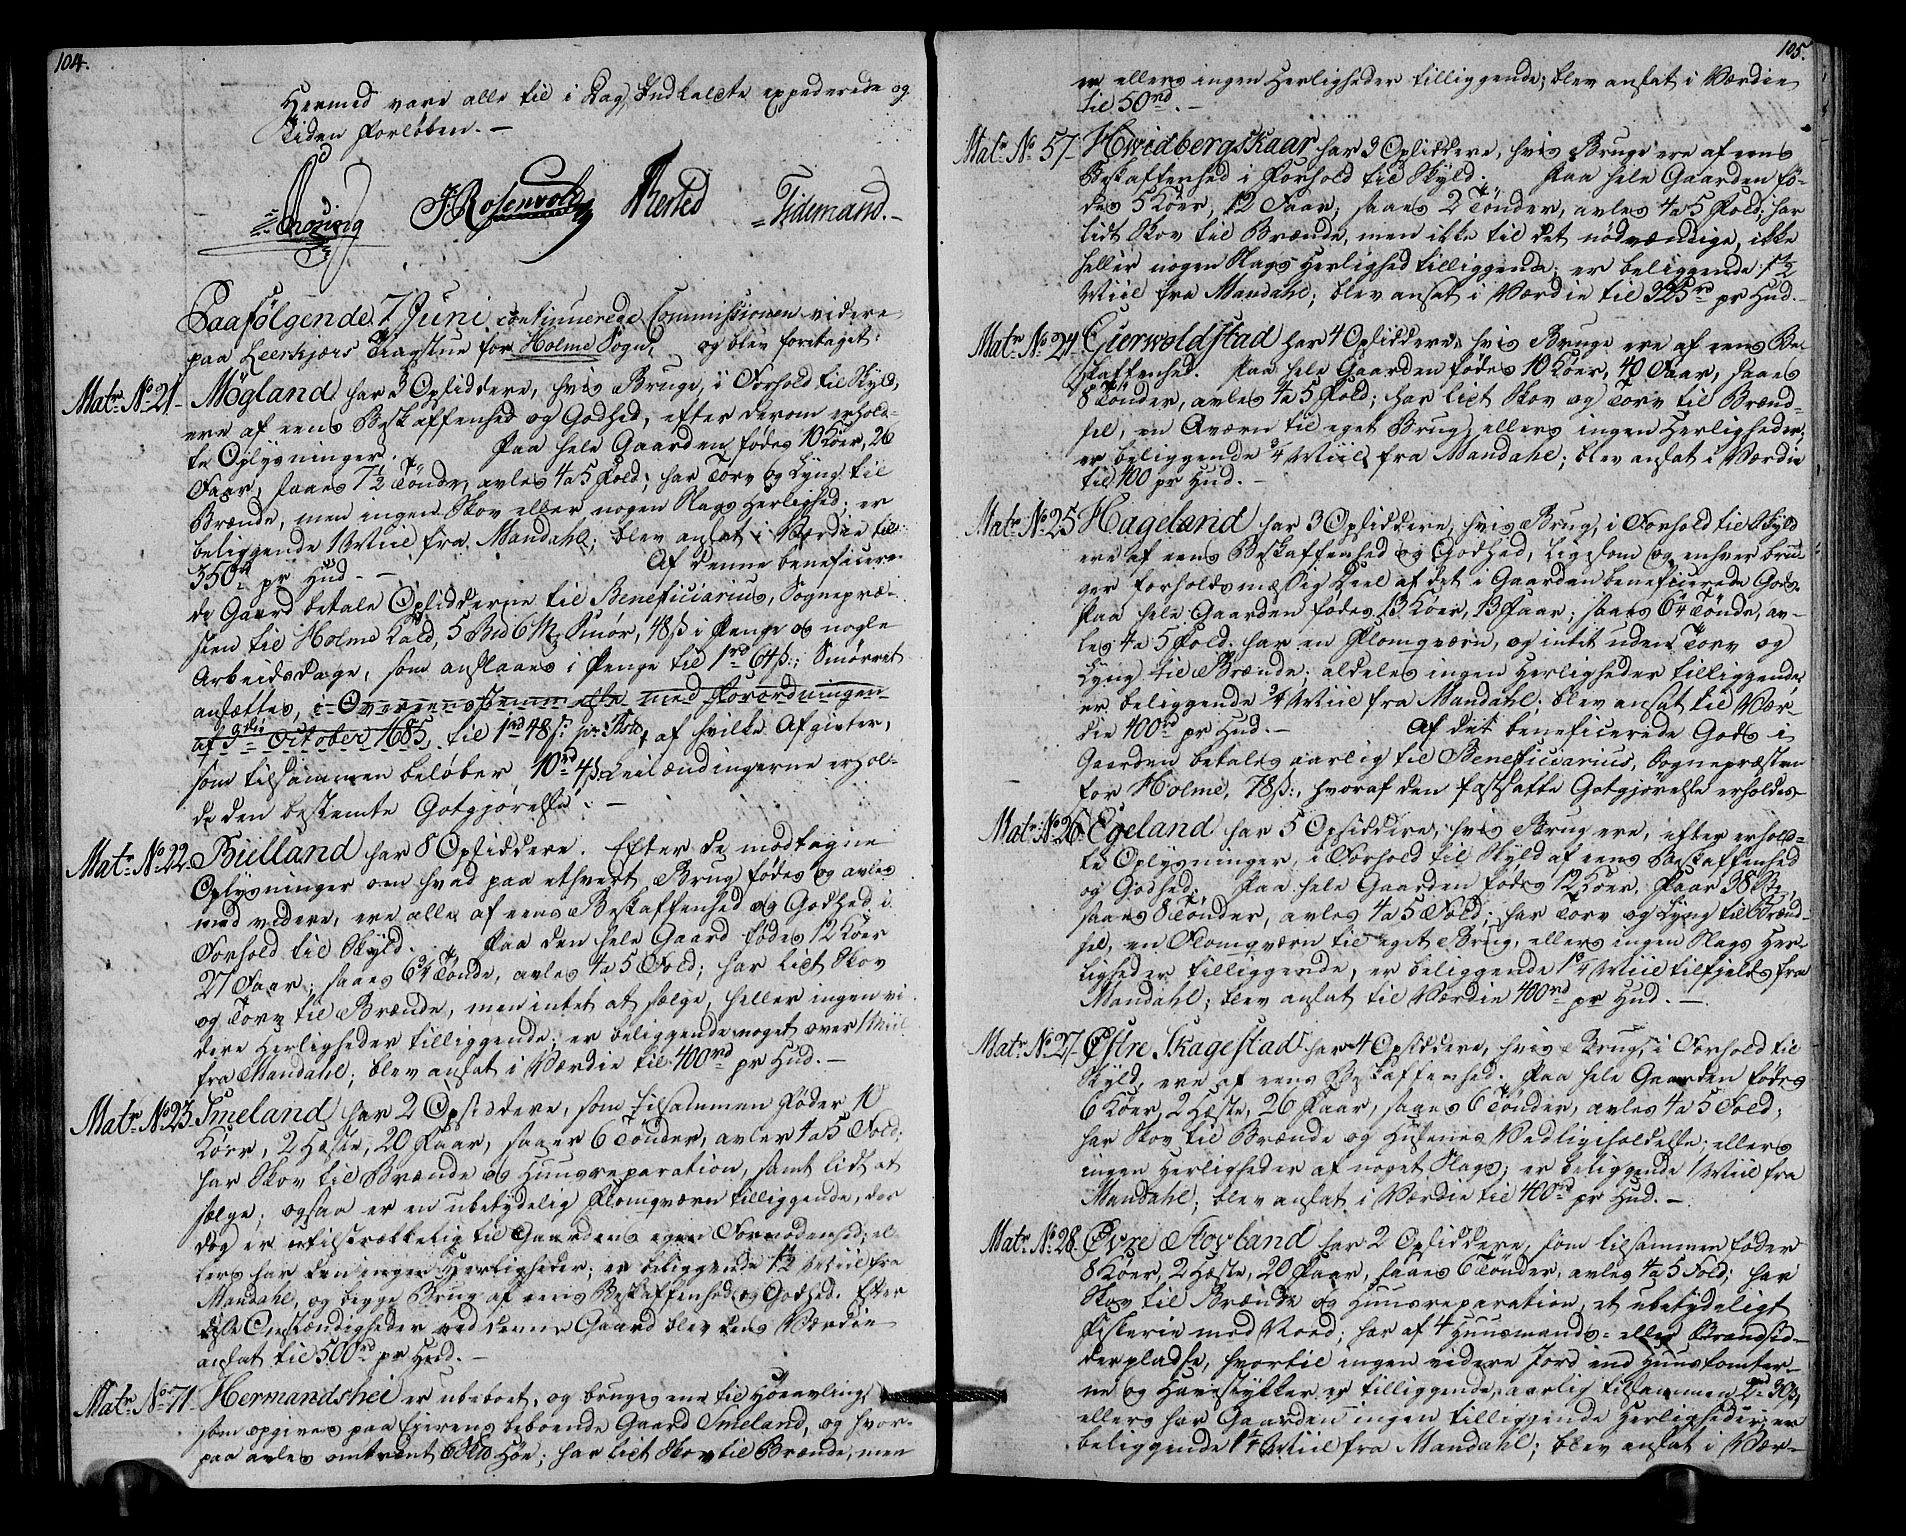 104.
Hermed vare alle til i Dag Indkaldte expederede og
Tiden Forløben. —
Thoring J. Rosenvold Bersted Tidemand. —
Paafølgende 7 Juni continuerede Commissionen videre
paa Leerkjærs Tingstue for Holme Sogn, og blev foretaget:
Matr. No. 21 – Mögland har 3 Opsiddere, hvis Bruge, i Forhold til Skyld,
ere af eens Beskaffenhed og Godhed, efter derom erhold-
te Oplysninger. Paa hele Gaarden födes 10 Köer, 26
Faar, saaes 7 1/2 Tönde, avles 4 a 5 Fold; har Torv og Lyng til
Brænde, men ingen Skov eller nogen Slags Herlighed; er
beliggende 1 Miil fra Mandahl; blev ansat i Værdie til
350 rd pr Hud. — Af denne beneficere-
de Gaard betale Opsidderne til Beneficiarius, Sognepræ-
sten til Holme Kald, 5 Bud 6 Mk Smör, 48 ß i Penge og nogle
Arbeidsdage, som anslaaes i Penge til 1 rd 64 ß.; Smörret
ansættes, i Overeensstemmelse med Forordningen
af 5te October 1685, til 1 rd 48 ß pr: , af hvilke Afgivter,
som tilsammen belöber 10 rd 4 ß Leilændingerne erhol-
de den bestemte Godtgjörelse. —
Matr. No. 22. Bielland har 8 Opsiddere. Efter de modtagne
Oplysninger om hvad paa ethvert Brug födes og avles
med videre, ere alle af eens Beskaffenhed og Godhed i
Forhold til Skyld. Paa den hele Gaard födes 12 Köer
27 Faar; saaes 6 3/4 Tönde, avles 4 a 5 Fold; har lidt Skov
og Torv til Brænde, men intet at sælge, heller ingen vi-
dere Herligheder tilliggende; er beliggende noget over 1 Miil
fra Mandahl; blev ansat i Værdie til 400 rd pr Hud. —
Matr. No. 23. Smeland har 2 Opsiddere, som tilsammen föder 10
Köer, 2 Heste, 20 Faar, saaer 6 Tönder, avler 4 a 5 Fold;
har Skov til Brænde og Huusreparation, samt lidt at
sælge; ogsaa er en ubetydelig Flomqværn tilliggende, der
dog er tilstrækkelig til Gaardens egen Fornödenhed; el-
lers har den ingen Herligheder; er beliggende 1 1/2 Miil fra
Mandahl, og begge Brug af eens Beskaffenhed og Godhed. Efter
disse Omstændigheder ved denne Gaard blev dens Værdie
ansat til 500 rd pr Hud. —
Matr. No. 71 – Hermandshei er ubeboet, og bruges ene til Höeavling,
som opgives paa Eierens beboende Gaard Smeland, og hvor-
paa avles omtrent Höe; har lidt Skov til Brænde, men
105.
er ellers ingen Herligheder tilliggende; blev ansat i Værdie
til 50 rd. —
Matr. No. 57 – Hwidbergskaar har 3 Opsiddere, hvis Bruge ere af eens
Beskaffenhed i Forhold til Skyld. Paa hele Gaarden fö-
des 5 Köer, 12 Faar; saaes 2 Tönder, avles 4 a 5 Fold; har
lidt Skov til Brænde, men ikke til det nödvendige, ikke
heller nogen Slags Herlighed tilliggende; er beliggende 1 1/2
Miil fra Mandahl; blev ansat i Værdie til 325 rd pr Hud. —
Matr. No. 24 – Gierwoldstad har 4 Opsiddere, hvis Bruge ere af eens Be-
skaffenhed. Paa hele Gaarden födes 10 Köer, 40 Faar, saaes
8 Tönder, avles 4 a 5 Fold; har lidt Skov og Torv til Brænd-
sel, en Qværn til eget Brug, ellers ingen Herligheder;
er beliggende 3/4 Miil fra Mandahl; blev ansat i Værdie
til 400 pr Hud. —
Matr. No. 25 Hageland har 3 Opsiddere, hvis Brug, i Forhold til Skyld
ere af eens Beskaffenhed og Godhed, ligesom og enhver bru-
ger forholdsmæssig Deel af det i Gaarden beneficerede Gods.
Paa hele Gaarden födes 13 Köer, 13 Faar; saaes 6 1/4 Tönde, av-
les 4 a 5 Fold; har en Flomqværn, og intet uden Torv og
Lyng til Brænde; aldeles ingen Herligheder tilliggende;
er beliggende 3/4 Miil fra Mandahl; blev ansat til Vær-
die 400 rd pr Hud. — Af det beneficerede Gods i
Gaarden betales aarlig til Beneficiarius, Sognepræsten
for Holme, 78 ß:, hvoraf den fastsatte Godtgjörelse erholdes.
Matr. No. 26. Egeland har 5 Opsiddere, hvis Brug ere, efter erhold-
te Oplysninger, i Forhold til Skyld af eens Beskaffenhed
og Godhed. Paa hele Gaarden födes 12 Köer, Faar 38,
saaes 8 Tönder, avles 4 a 5 Fold; har Torv og Lyng til Brænd-
sel, en Flomqværn til eget Brug, ellers ingen Slags Her-
ligheder tilliggende, er beliggende 1 1/4 Miil tilfjelds fra
Mandahl; blev ansat til Værdie 400 rd pr Hud. —
Matr. No. 27 – Östre Skagestad har 4 Opsiddere, hvis Brug, i Forhold til
Skyld, ere af eens Beskaffenhed. Paa hele Gaarden födes
6 Köer, 2 Hæste, 26 Faar, saaes 6 Tönder, avles 4 a 5 Fold;
har Skov til Brænde og Husenes Vedligeholdelse; ellers
ingen Herligheder af noget Slags; er beliggende 1 Miil fra
Mandahl; blev ansat i Værdie til 400 rd pr Hud. —
Matr. No. 28. Övre Stovland har 2 Opsiddere, som tilsammen föder
8 Köer, 2 Hæste, 20 Faar, saaes 6 Tönder, avles 4 a 5 Fold; har
Skov til Brænde og Huusreparation, et ubetydeligt
Fiskerie med Noed; har af 4 Huusmands- eller Strandsid-
derpladse, hvortil ingen videre Jord end Huustomter-
ne og Havestykker er tilliggende, aarlig tilsammen 2 rd 30 ß,
ellers har Gaarden ingen tilliggende Herligheder; er
beliggende 1 1/4 Miil fra Mandahl; blev ansat i Vær-